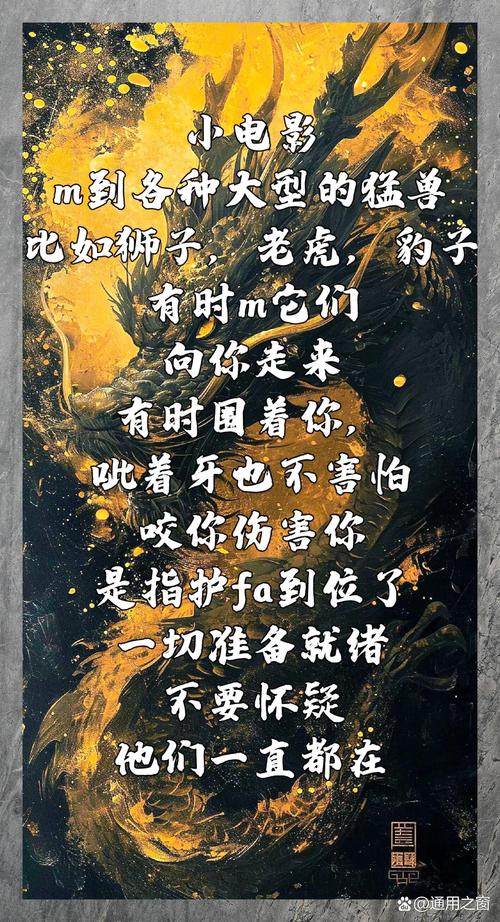 小电影
m到各种大型的猛兽
比如狮子，老虎，豹子
有时m它们
向你走来
有时围着你，
呲着牙也不害怕
咬你伤害你
是指护fa到位了
一切准备就绪
不要怀疑
他们一直都在
@通用之窗